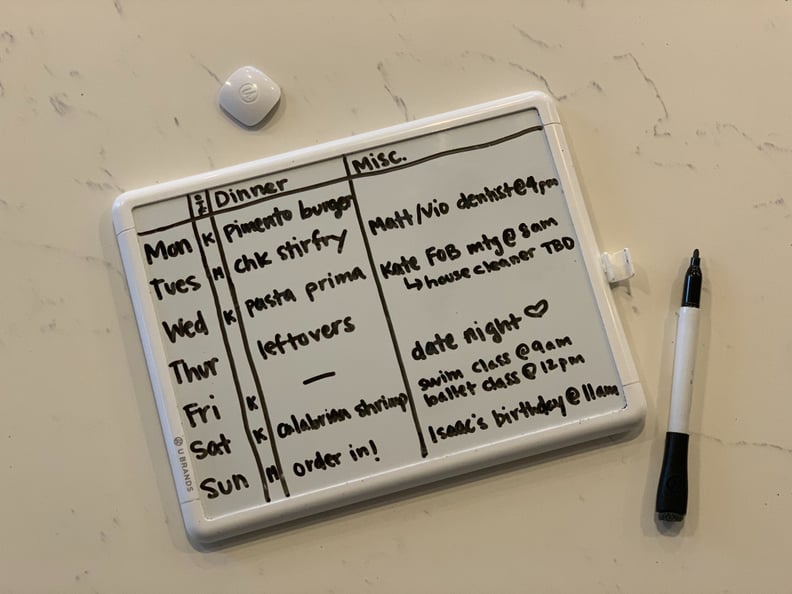 Dinner Misc.
Mon K Pimento burger Matt/Vio dentist@4pm
Tues M chk stirfry Kate FOB mtg @ 8am
↳ house cleaner TBD
Wed K pasta prima
Thur leftovers
Fri K — date night ♡
Sat K calabrian shrimp swim class @ 9am
ballet class @ 12pm
Sun M order in! Isaac's birthday @ 11am
U BRANDS